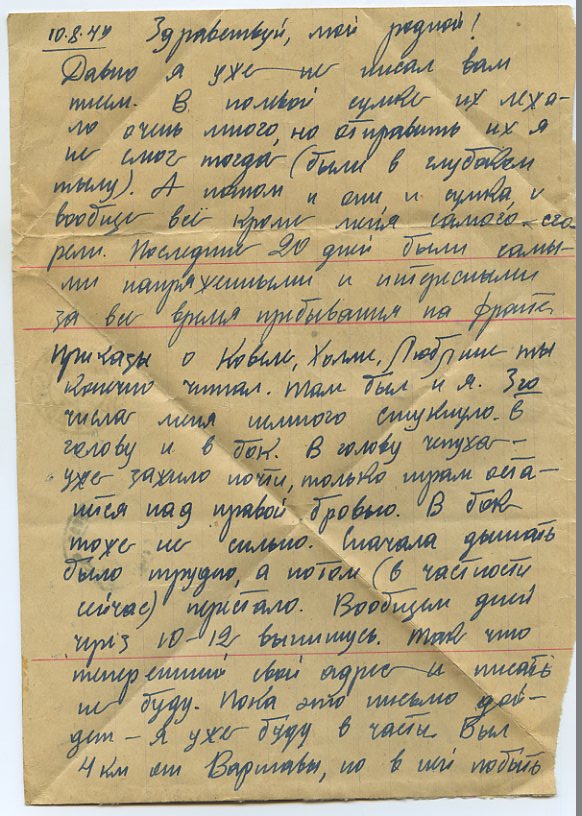 10.8.44 Здравствуй, мой родной!
Давно я уже не писал вам
писем. В полевой сумке их лежа-
ло очень много, но отправить их я
не смог тогда (были в глубоком
тылу). А потом и они, и сумка, и
вообще всё кроме меня самого сго-
рели. Последние 20 дней были самы-
ми напряженными и интересными
за все время прибывания на фронте.
Приказы о Ковеле, Холме, Люблине ты
конечно читал. Там был и я. 3го
числа меня немного стукнуло в
голову и в бок. В голову чепуха -
уже зажило почти, только шрам оста-
нется над правой бровью. В бок
тоже не сильно. Сначала дышать
было трудно, а потом (в частности
сейчас) перестало. Вообщем дней
через 10-12 выпишусь. Так что
теперешний свой адрес и писать
не буду. Пока это письмо дой-
дет - я уже буду в части. Был
4 км от Варшавы, но в ней побыть